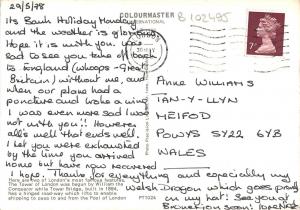 29/5/78
COLOURMASTER
INTERNATIONAL
B 102495
Its Bank Holiday Monday
and the weather is glorious
Hope it is with you. Was
sad to see you take off back
to England (whoops - Great
Britain) without me, and
when our plane had a
puncture and broke a wing
I was even more sad I was
not with you!! However
alls well that ends well.
I bet you were exhausted
by the time you arrived
home but have now recovered
I hope. Thanks for everything and especially my
Welsh Dragon which goes proudly
on my hat! See you
soon
7P
Anne Williams
TAN-Y-LLYN
MEIFOD
POWYS SY22 6YB
WALES
PT1026
Here are two of London's most famous features.
The Tower of London was begun by William the
Conqueror while Tower Bridge, built in 1894,
has a hinged road-way which lifts to enable
shipping to pass to and from the Pool of London